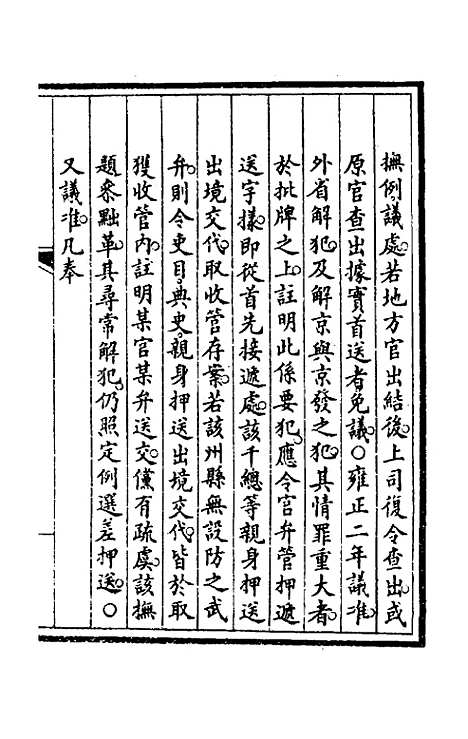 撫例議處若地方官出結後上司復令查出或
原官查出據實首送者免議○雍正二年議准
外省解犯及解京與京發之犯其情罪重大者
於批牌之上註明此係要犯應令官弁管押遞
送字樣即從首先接遞處該千總等親身押送
出境交代取收管存案若該州縣無設防之武
弁則令吏目典史親身押送出境交代皆於取
獲收管內註明某官某弁送交儻有疏虞該撫
題叅黜革其尋常解犯仍照定例選差押送○
又議准凡奉